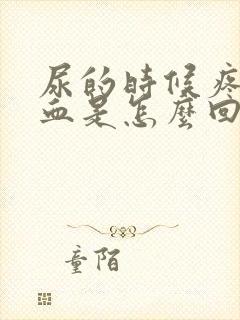 尿的時候疼
血是怎麼回
童陌